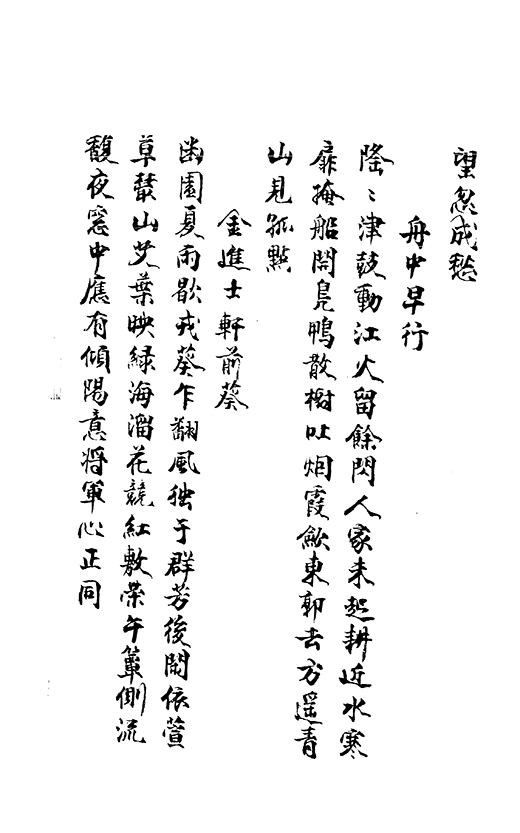 望忽成愁
舟中早行
隆〻津鼓動江火留餘閃人家未起耕近水寒
扉掩船開鳧鴨散樹吐烟霞歛東郭去方遥青
山見孤點
金進士軒前葵
幽園夏雨歇戎葵乍翻風独于群芳後開依萱
草叢山艾葉映綠海溜花競紅敷榮午簟側流
馥夜窓中應有傾陽意將軍心正同